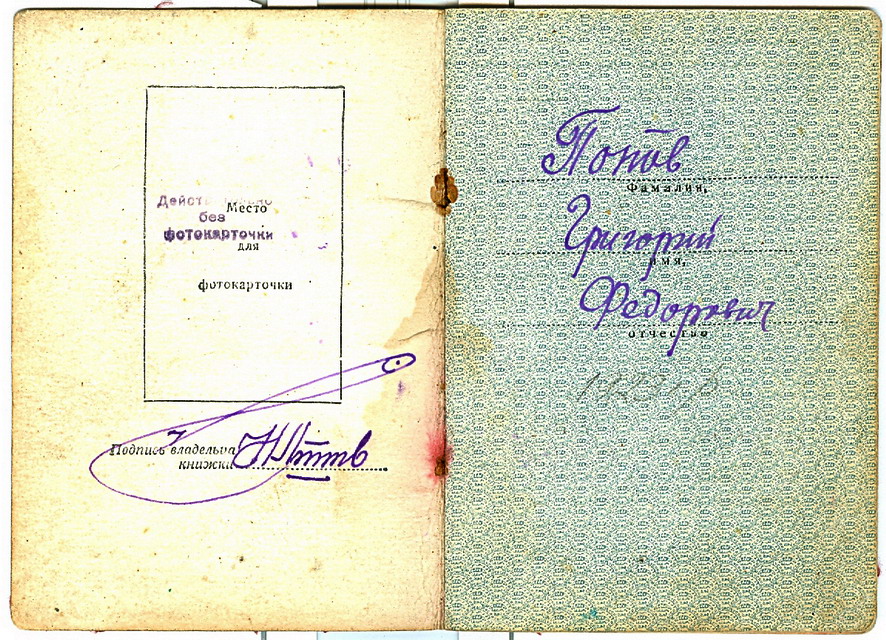 Действительно
без
фотокарточки
Место
для
фотокарточки
Подпись владельца
книжки
Попов
Фамилия,
Григорий
имя,
Федорович
отчество